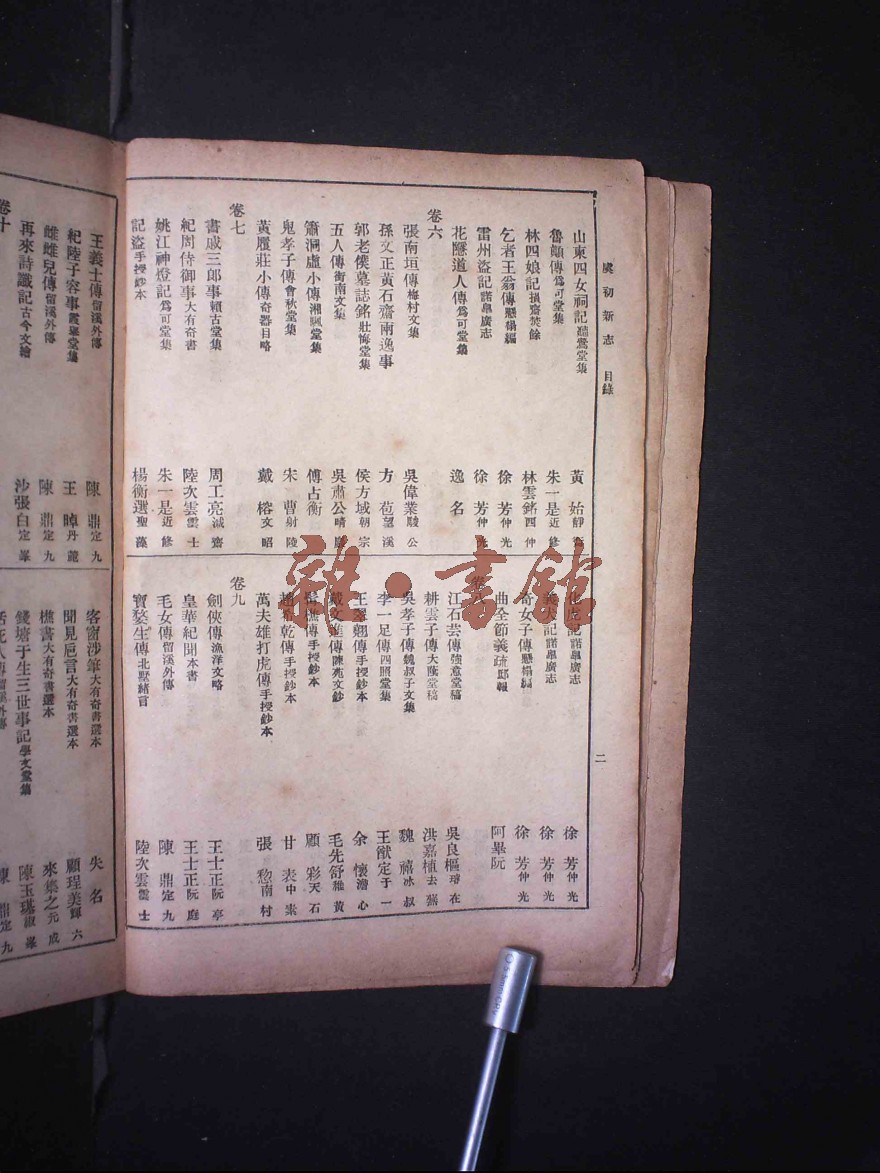 虞初新志　目錄
二
山東四女祠記
黃　始靜
魯顛傳爲可堂集
朱一是近修
林四娘記損齋焚餘
林雲銘西仲
乞者王翁傳懸榻編
徐　芳仲光
雷州盜記諾臯廣志
徐　芳仲光
花隱道人傳爲可堂集
逸　名
卷六
張南垣傳梅村文集
吳偉業駿公
孫文正黃石齋兩逸事
方　苞望溪
郭老僕墓誌銘壯悔堂集
侯方域朝宗
五人傳街南文集
吳肅公晴巖
簫洞虛小傳湘颿堂集
傅占衡
鬼孝子傳會秋堂集
宋　曹射陵
黃履莊小傳奇器目略
戴　榕文昭
卷七
書戚三郎事賴古堂集
周工亮減齋
紀周侍御事大有奇書
陸次雲雲士
姚江神燈記爲可堂集
朱一是近修
記盜手授鈔本
楊衡選聖藻
虎記諾臯廣志
徐　芳仲光
義犬記諾臯廣志
徐　芳仲光
奇女子傳懸榻編
徐　芳仲光
曲全節義疏邸報
阿畢阮
卷八
江石芸傳強意堂稿
吳良樞璿在
耕雲子傳大蔭堂稿
洪嘉植去蕪
吳孝子傳魏叔子文集
魏　禧冰叔
李一足傳四照堂集
王猷定于一
王翠翹傳手授鈔本
余　懷澹心
戴文進傳陳苑文鈔
毛先舒稚黃
髯樵傳手授鈔本
顧　彩天石
趙希乾傳手授鈔本
甘　表中素
萬夫雄打虎傳手授鈔本
張　惣南村
卷九
劍俠傳漁洋文略
王士正阮亭
皇華紀聞本書
王士正阮亭
毛女傳留溪外傳
陳　鼎定九
寶婺生傳北墅緒言
陸次雲雲士
王義士傳留溪外傳
陳　鼎定九
紀陸子容事霞舉堂集
王　晫丹麓
雌雌兒傳留溪外傳
陳　鼎定九
再來詩讖記古今文繪
沙張白定峯
卷十
客窗涉筆大有奇書選本
失　名
聞見卮言大有奇書選本
顧珵美輝六
樵書大有奇書選本
來集之元成
錢塘于生三世事記學文堂集
陳玉璂椒峯
活死人傳留溪外傳
陳　鼎定九
雜·書館